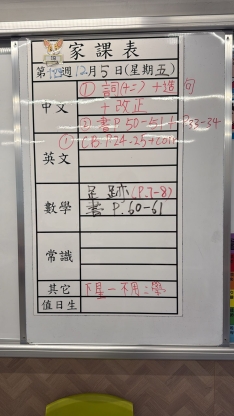 家課表
第 週12月5日(星期五)
中文
① 詞(十二)+造句
+改正
② 書P.50-51+P.33-34
英文
① CB P.24-25+corr
數學
足跡(P.7-8)
書P.60-61
常識
其它
下星一不用
值日生